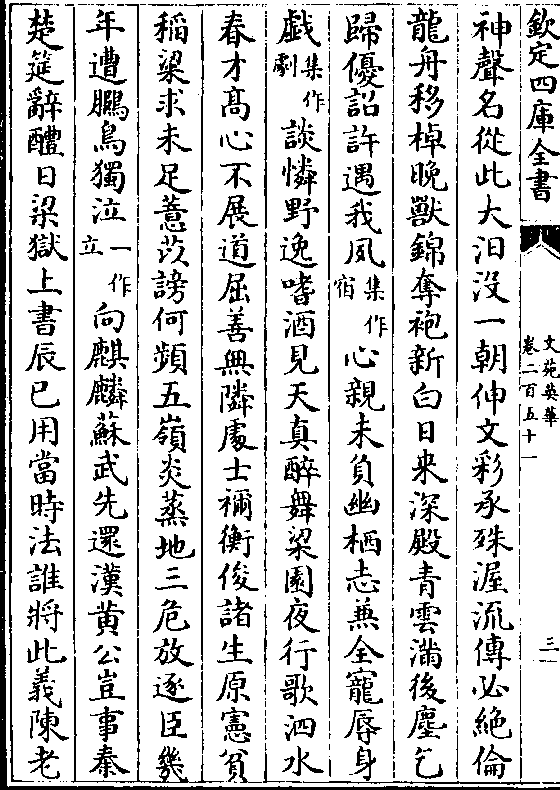 欽定四庫全書
文苑英華
卷二百五十一
三
神聲名從此大汨没一朝伸文彩承殊渥流傳必絶倫
龍舟移棹晚獸錦奪袍新白日来深殿青雲滿後塵乞
歸優詔許遇我夙集作宿心親未負幽栖志兼全寵辱身
戯集作劇談憐野逸嗜酒見天真醉舞梁園夜行歌泗水
春才髙心不展道屈善無隣處士禰衡俊諸生原憲貧
稻粱求未足薏苡謗何頻五嶺炎蒸地三危放逐臣幾
年遭鵩鳥獨泣一作立向麒麟蘇武先還漢黄公豈事秦
楚筵辭醴日梁獄上書辰已用當時法誰將此義陳老